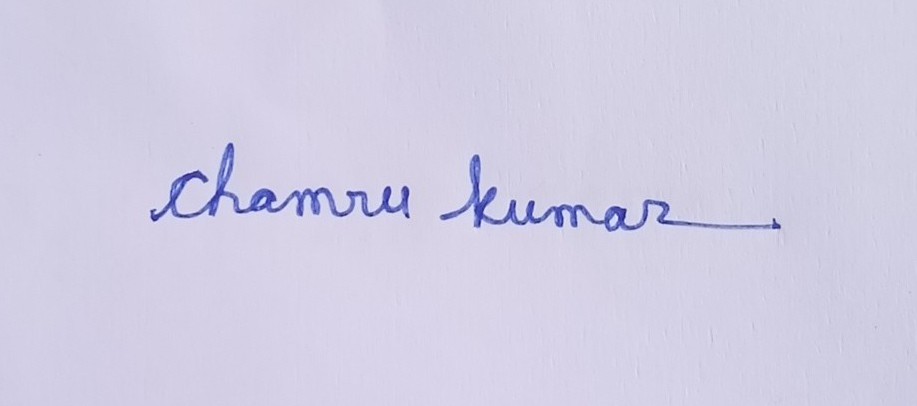 Chamru kumar